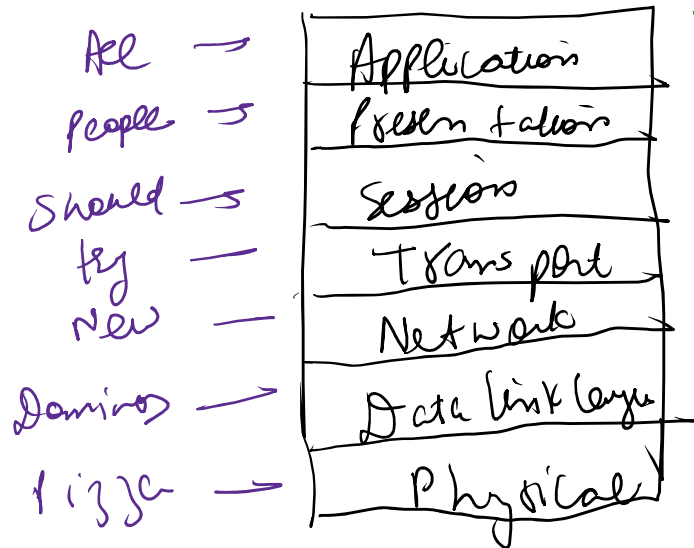 All → Application
People → Presentation
Should → Session
try — Transport
New — Network
Dominos → Data link layer
Pizza → Physical